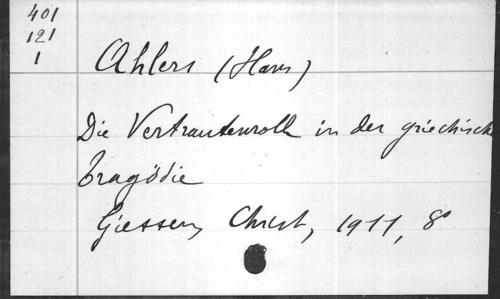 401
121
1
Ahlers (Hans)
Die Vertrautenrolle in der griechische
Tragödie
Giessen, Christ, 1911, 8°